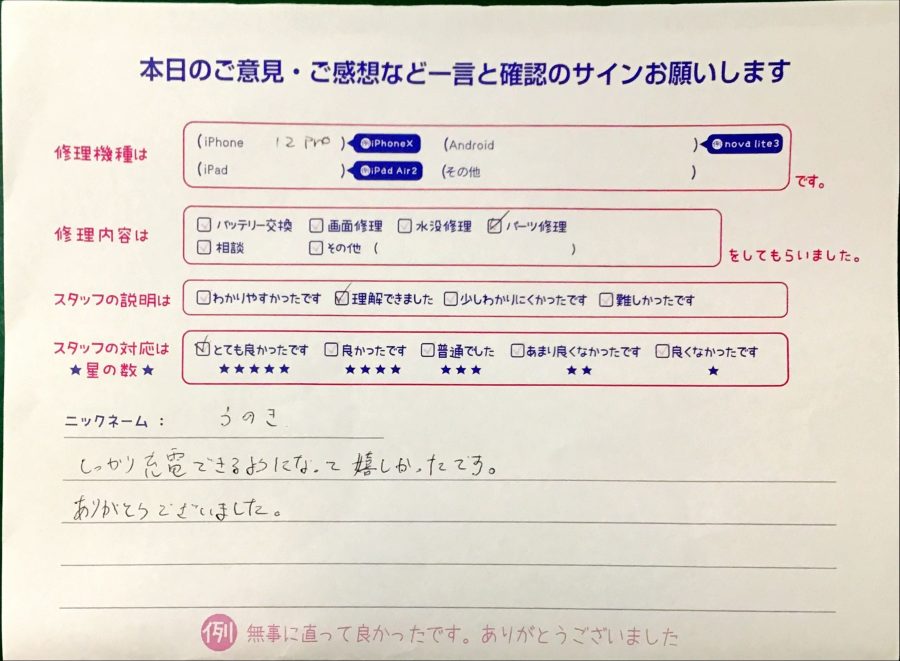 本日のご意見・ご感想など一言と確認のサインお願いします
修理機種は (iPhone 12 Pro ) 例iPhoneX (Android ) 例nova lite3
(iPad ) 例iPad Air2 (その他 ) です。
修理内容は □バッテリー交換 □画面修理 □水没修理 ☑パーツ修理
□相談 □その他 ( ) をしてもらいました。
スタッフの説明は □わかりやすかったです ☑理解できました □少しわかりにくかったです □難しかったです
スタッフの対応は ☑とても良かったです □良かったです □普通でした □あまり良くなかったです □良くなかったです
★星の数★ ★★★★★ ★★★★ ★★★ ★★ ★
ニックネーム： うのき
しっかり充電できるようになって嬉しかったです。
ありがとうございました。
例 無事に直って良かったです。ありがとうございました